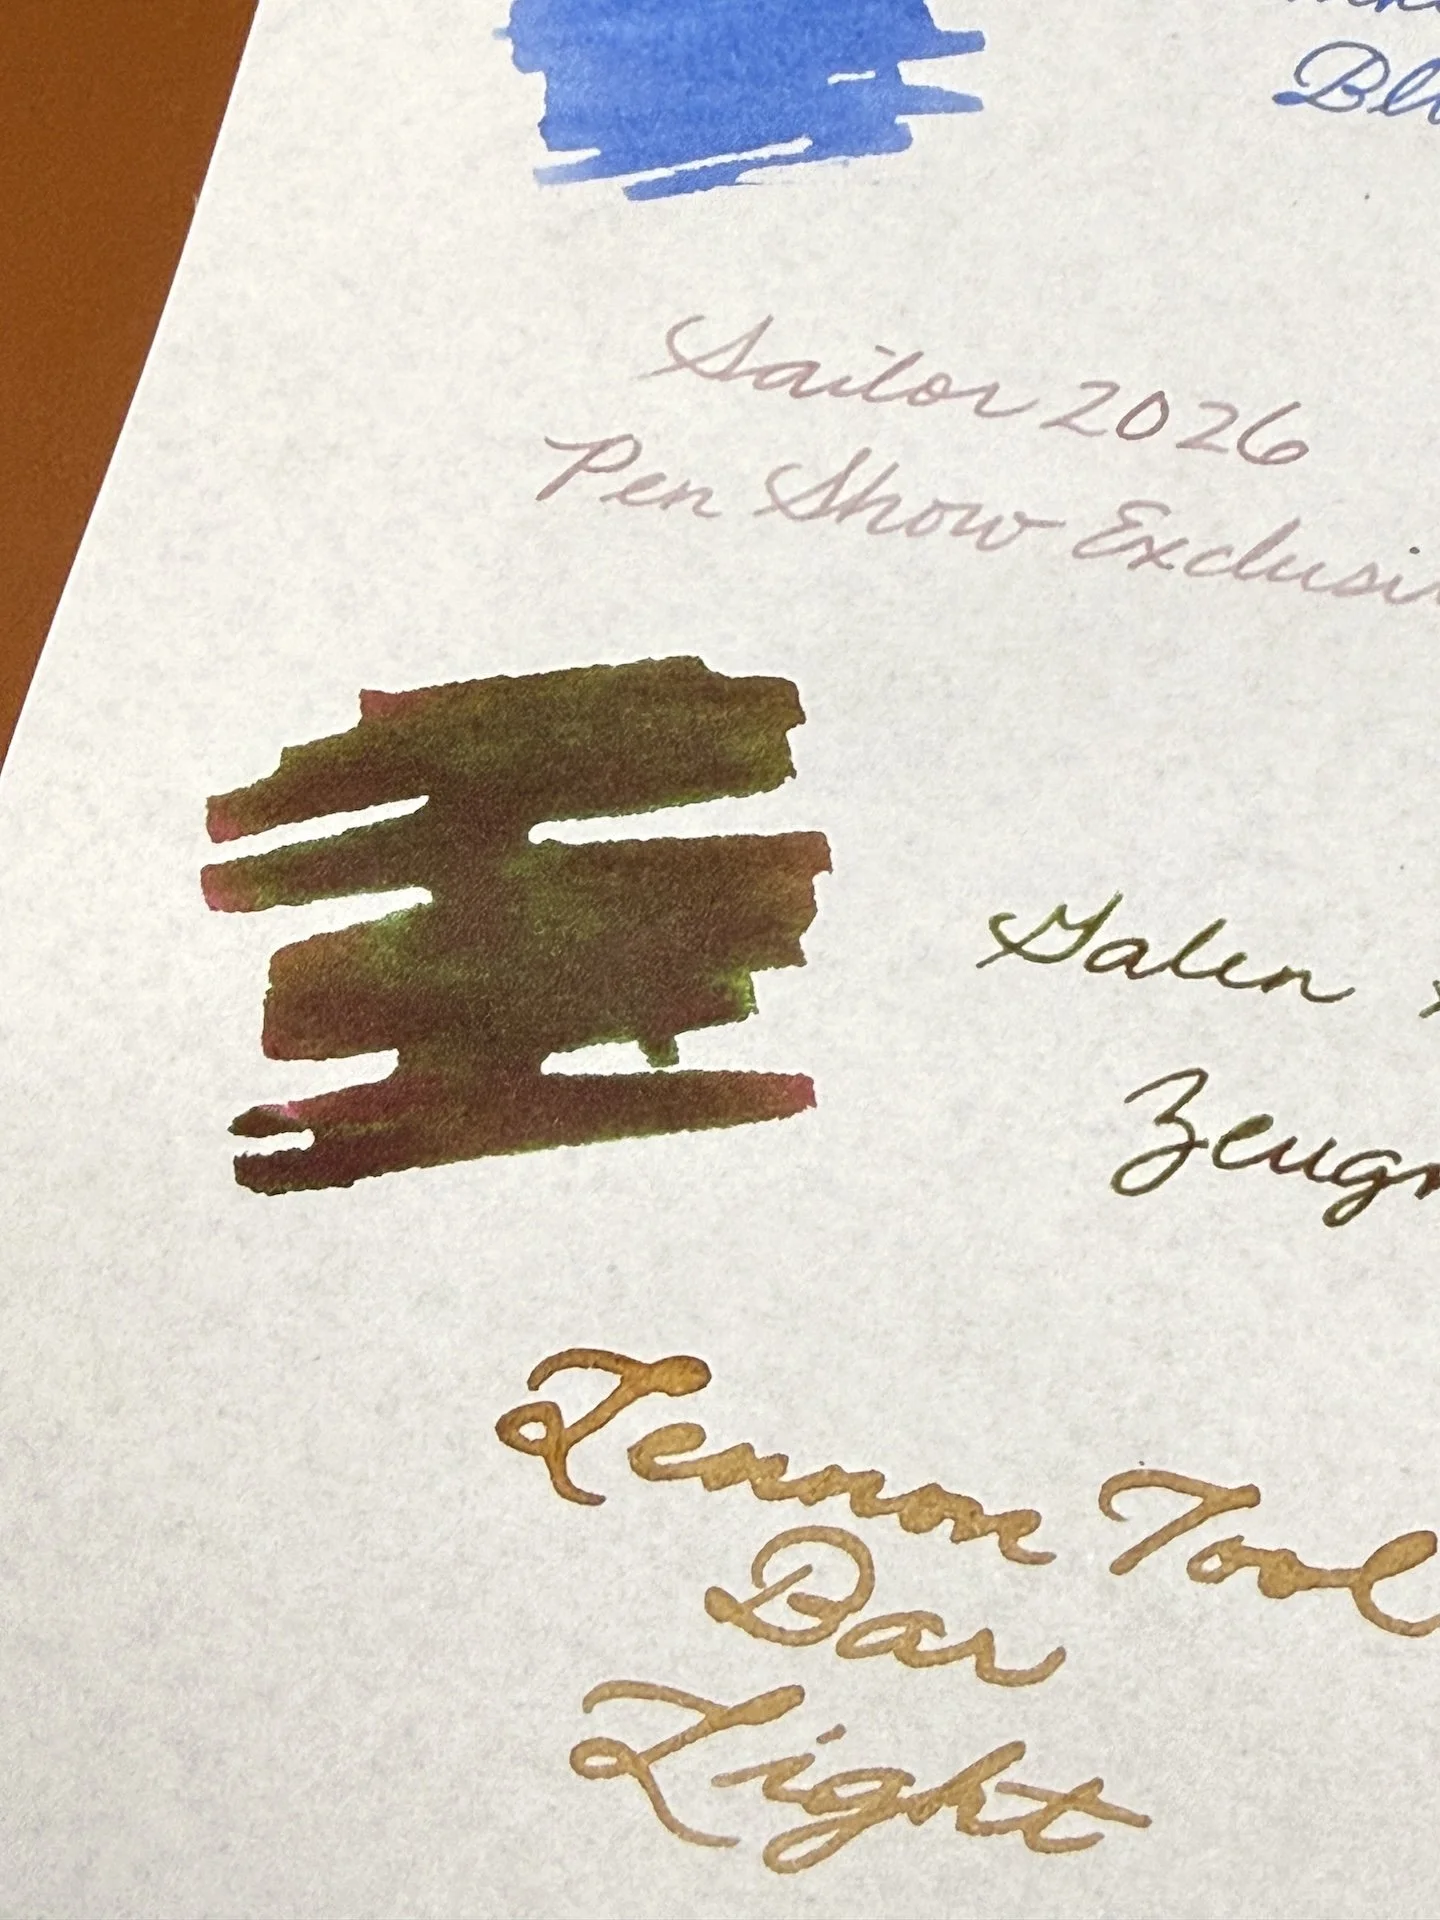 Sailor 2026
Pen Show Exclusi
Galen
Zeug
Lennon Tool
Bar
Light